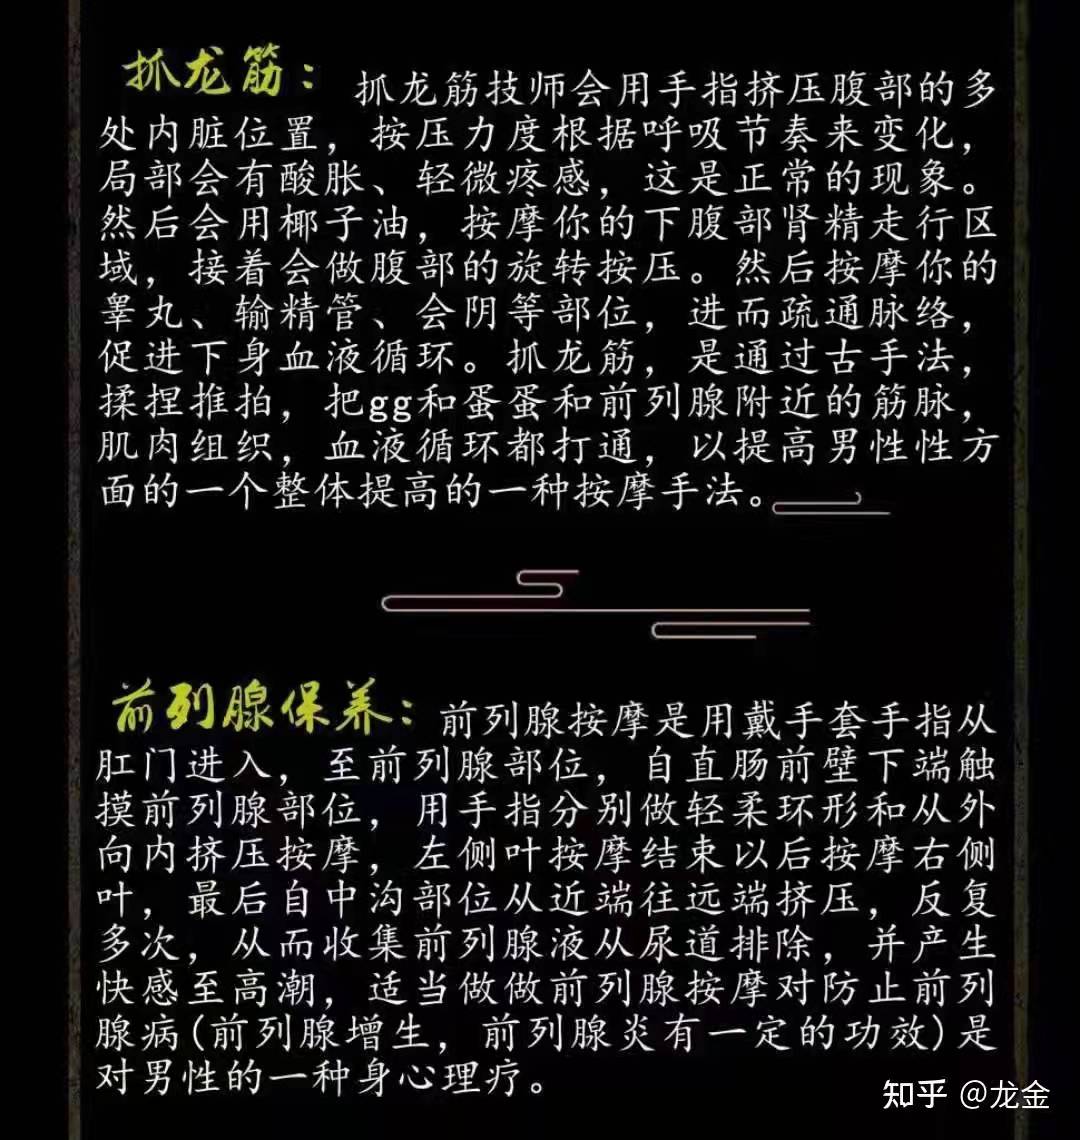 抓龙筋：抓龙筋技师会用手指挤压腹部的多
处内脏位置，按压力度根据呼吸节奏来变化，
局部会有酸胀、轻微疼感，这是正常的现象。
然后会用椰子油，按摩你的下腹部肾精走行区
域，接着会做腹部的旋转按压。然后按摩你的
睾丸、输精管、会阴等部位，进而疏通脉络，
促进下身血液循环。抓龙筋，是通过古手法，
揉捏推拍，把gg和蛋蛋和前列腺附近的筋脉，
肌肉组织，血液循环都打通，以提高男性性方
面的一个整体提高的一种按摩手法。
前列腺保养：前列腺按摩是用戴手套手指从
肛门进入，至前列腺部位，自直肠前壁下端触
摸前列腺部位，用手指分别做轻柔环形和从外
向内挤压按摩，左侧叶按摩结束以后按摩右侧
叶，最后自中沟部位从近端往远端挤压，反复
多次，从而收集前列腺液从尿道排除，并产生
快感至高潮，适当做做前列腺按摩对防止前列
腺病(前列腺增生，前列腺炎有一定的功效)是
对男性的一种身心理疗。
知乎 @龙金